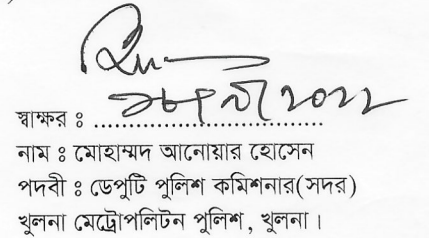 স্বাক্ষর ঃ ..................................
নাম ঃ মোহাম্মদ আনোয়ার হোসেন
পদবী ঃ ডেপুটি পুলিশ কমিশনার(সদর)
খুলনা মেট্রোপলিটন পুলিশ, খুলনা।